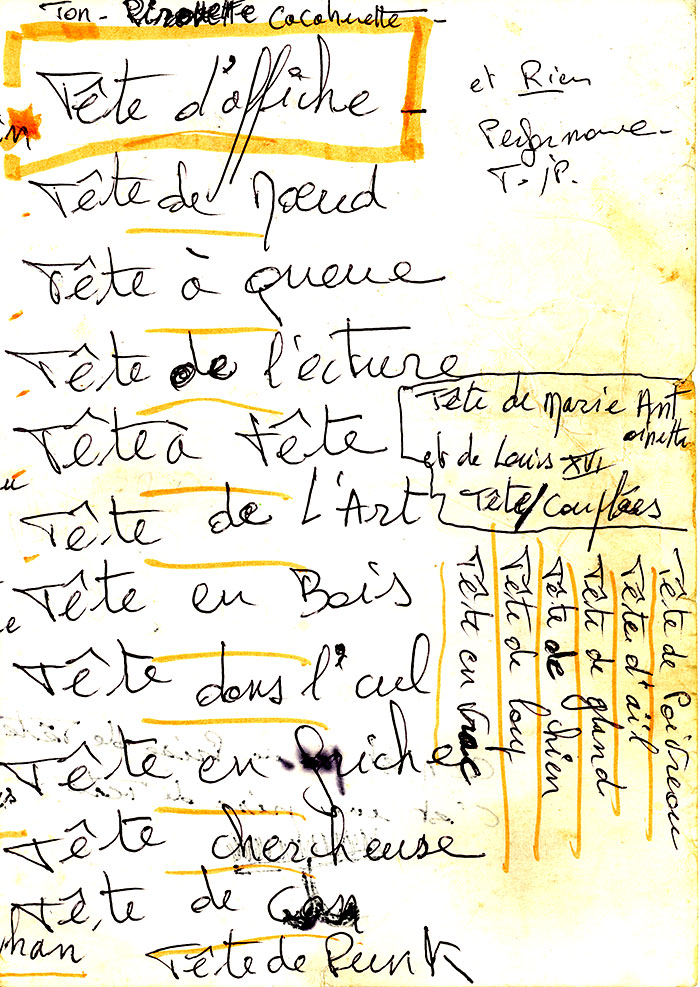 Ton - Pirouette Cacahuette -
Tête d'affiche -
et Rien
T. JP.
Tête de Nœud
Tête à queue
Tête de l'ecture
Tête à Tête
Tête de Marie Ant
oinette
et de Louis XVI
Tête/Coupées
Tête de L'Art
Tête en Bois
Tête dans l'cul
Tête en friche
Tête chercheuse
Tête de Con
Tête de Punk
han
Tête de Poivreau
Tête d'aïl
Tête de gland
Tête de chien
Tête de loup
Tête en vrac